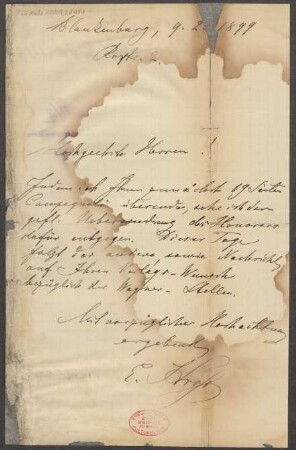 Blankenburg, 9. 2. 1899
Hochgeehrte Herren!
Indem ich Ihnen zunächst 69 Seiten
übersende, sehe ich der
gefl. Uebersendung des Honorars
dafür entgegen. Dieser Tage
folgt das andere, sowie Nachricht
auf Ihren Verlags-Wunsch
bezüglich der Wagner-Stellen.
Mit vorzüglicher Hochachtung
ergebenst
E.